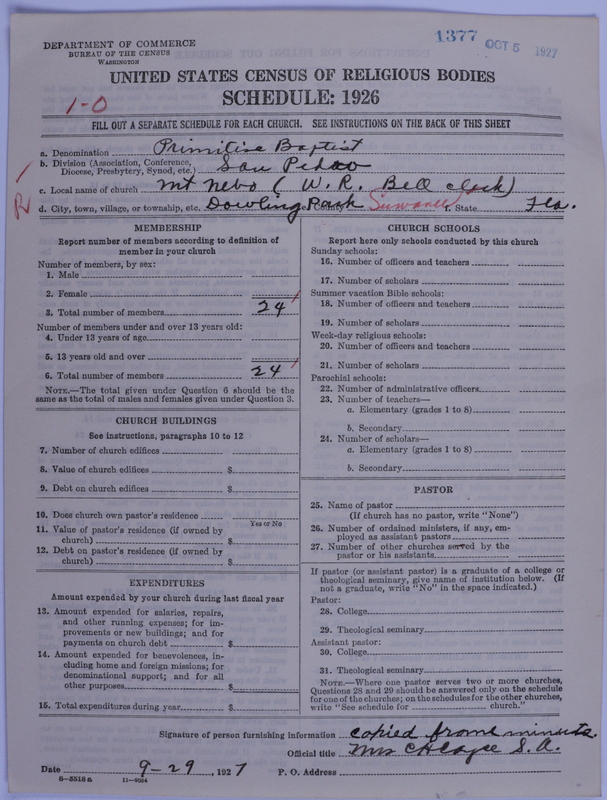 1377 OCT 5 1927
DEPARTMENT OF COMMERCE
BUREAU OF THE CENSUS
WASHINGTON
UNITED STATES CENSUS OF RELIGIOUS BODIES
SCHEDULE: 1926
1-0
FILL OUT A SEPARATE SCHEDULE FOR EACH CHURCH. SEE INSTRUCTIONS ON THE BACK OF THIS SHEET
a. Denomination Primitive Baptist
b. Division (Association, Conference, Diocese, Presbytery, Synod, etc.) San Pedro
c. Local name of church Mt Nebo (W. R. Bell clock)
d. City, town, village, or township, etc. Dowling Park e. County Suwanee f. State Fla.
MEMBERSHIP
Report number of members according to definition of member in your church
Number of members, by sex:
1. Male
2. Female
3. Total number of members 24
Number of members under and over 13 years old:
4. Under 13 years of age
5. 13 years old and over
6. Total number of members 24
NOTE.—The total given under Question 6 should be the same as the total of males and females given under Question 3.
CHURCH BUILDINGS
See instructions, paragraphs 10 to 12
7. Number of church edifices
8. Value of church edifices $
9. Debt on church edifices $
10. Does church own pastor's residence
Yes or No
11. Value of pastor's residence (if owned by church) $
12. Debt on pastor's residence (if owned by church) $
EXPENDITURES
Amount expended by your church during last fiscal year
13. Amount expended for salaries, repairs, and other running expenses; for improvements or new buildings; and for payments on church debt $
14. Amount expended for benevolences, including home and foreign missions; for denominational support; and for all other purposes $
15. Total expenditures during year $
CHURCH SCHOOLS
Report here only schools conducted by this church
Sunday schools:
16. Number of officers and teachers
17. Number of scholars
Summer vacation Bible schools:
18. Number of officers and teachers
19. Number of scholars
Week-day religious schools:
20. Number of officers and teachers
21. Number of scholars
Parochial schools:
22. Number of administrative officers
23. Number of teachers—
a. Elementary (grades 1 to 8)
b. Secondary
24. Number of scholars—
a. Elementary (grades 1 to 8)
b. Secondary
PASTOR
25. Name of pastor
(If church has no pastor, write "None")
26. Number of ordained ministers, if any, employed as assistant pastors
27. Number of other churches served by the pastor or his assistants
If pastor (or assistant pastor) is a graduate of a college or theological seminary, give name of institution below. (If not a graduate, write "No" in the space indicated.)
Pastor:
28. College
29. Theological seminary
Assistant pastor:
30. College
31. Theological seminary
NOTE.—Where one pastor serves two or more churches, Questions 28 and 29 should be answered only on the schedule for one of the churches; on the schedules for the other churches, write "See schedule for church."
Signature of person furnishing information copied from minutes.
Official title Mrs C H S. A.
Date 9-29, 1927 P. O. Address
8-5518a 11-9084